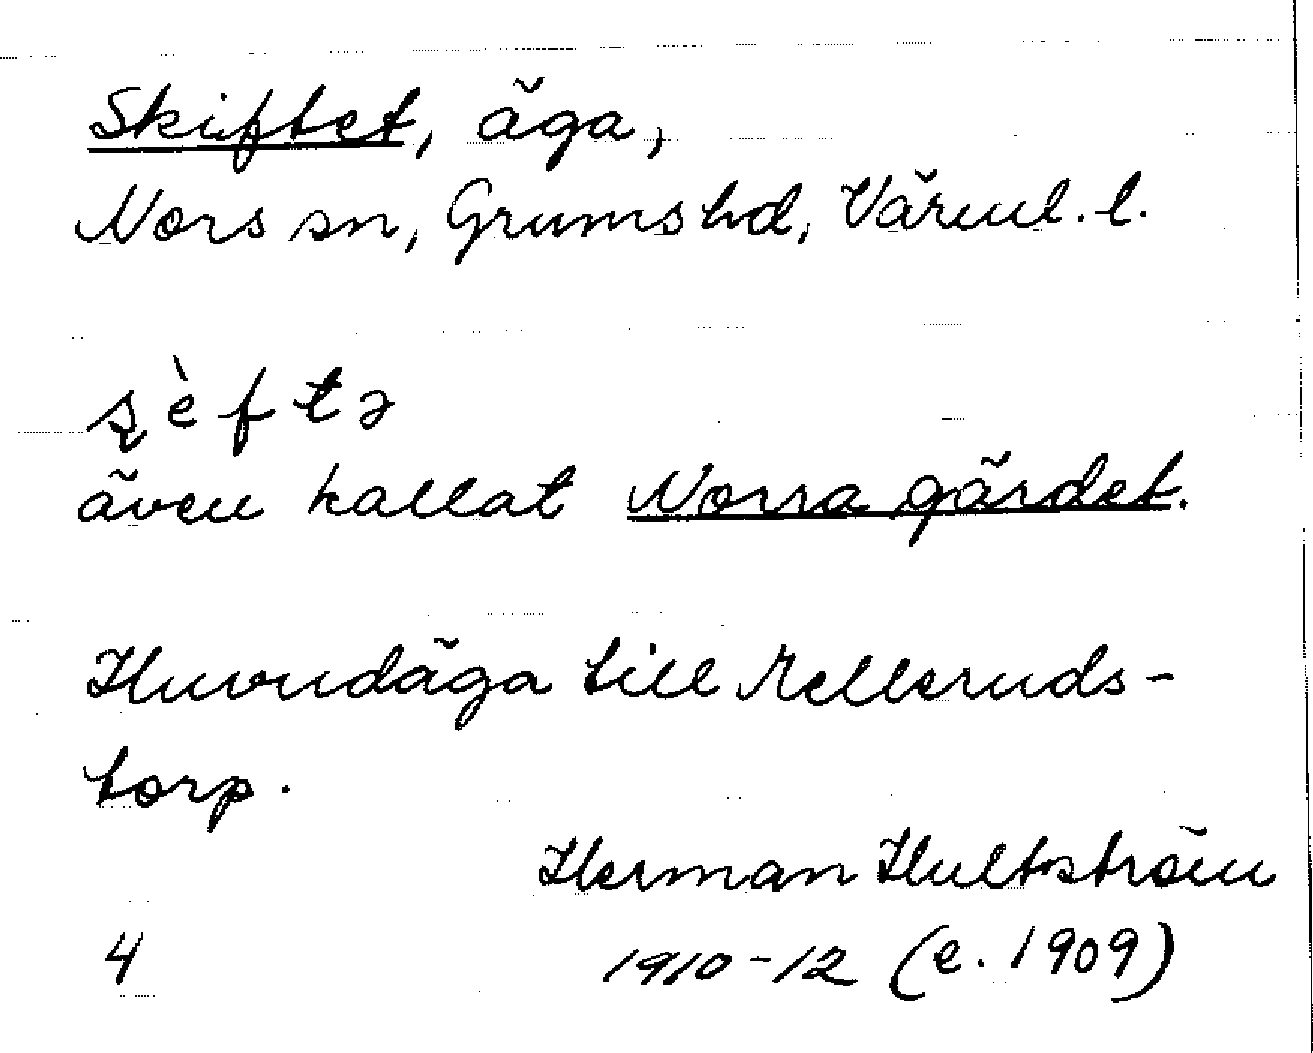 Skiftet, äga,
Nors sn, Grums hd, Värml. l.
ʂèftə
även kallat Norra gärdet.
Huvudäga till Melleruds-
torp.
Herman Hultström
4 1910-12 (e. 1909)